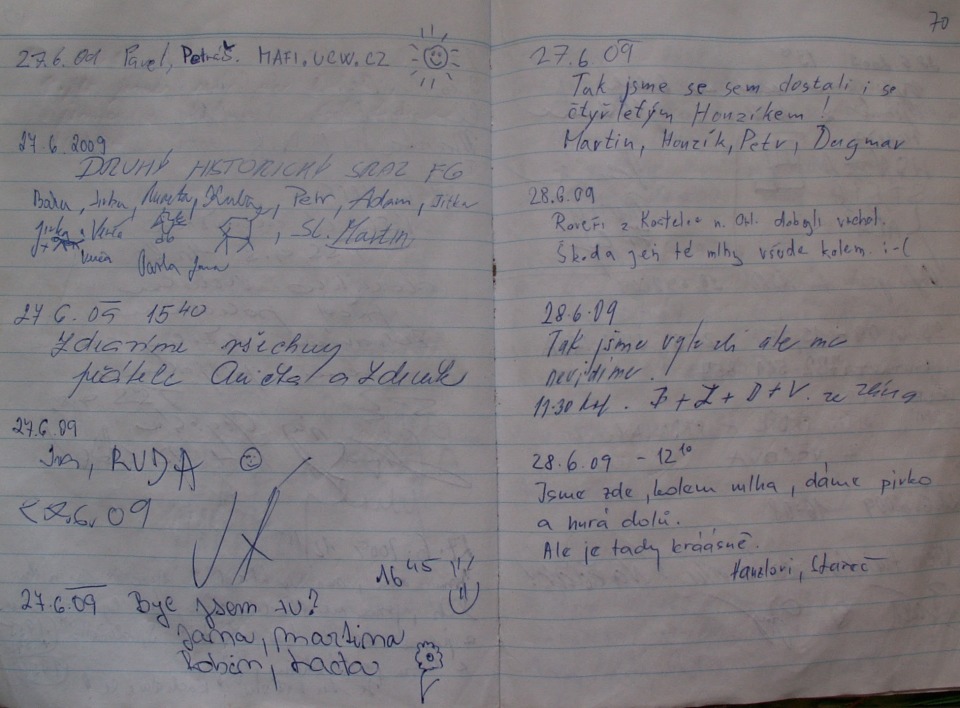 27.6.09 Pavel, Petráš. MAFI.UCW.CZ
27.6.2009
DRUHÝ HISTORICKÝ SRAZ FG
Bára, Jirka, Kuba, Petr, Adam, Jitka
Jirka, Verča, Sl. Martin
Pavla Jana
27 6. 09 15 40
Zdravíme všechny
přátele Anička a Zdeněk
27.6.09
Iva, RUDA
27.6.09
16 45
27.6.09 Byc jsem tu?
Jana, martina
Robin, Lada
70
27.6 09
Tak jsme se sem dostali i se
čtyřletým Honzíkem!
Martin, Honzík, Petr, Dagmar
28.6.09
Roveři z Kostelce n. Orl. dobyli vrchol.
Škoda jen té mlhy všude kolem. :-(
28.6.09
Tak jsme vylezli ale nic
nevidíme.
11.30 hod. B + Z + D + V.
28.6.09 - 12 10
Jsme zde, kolem mlha, dáme pivko
a hurá dolů.
Ale je tady kráásně.
Hanzlovi, Stareč